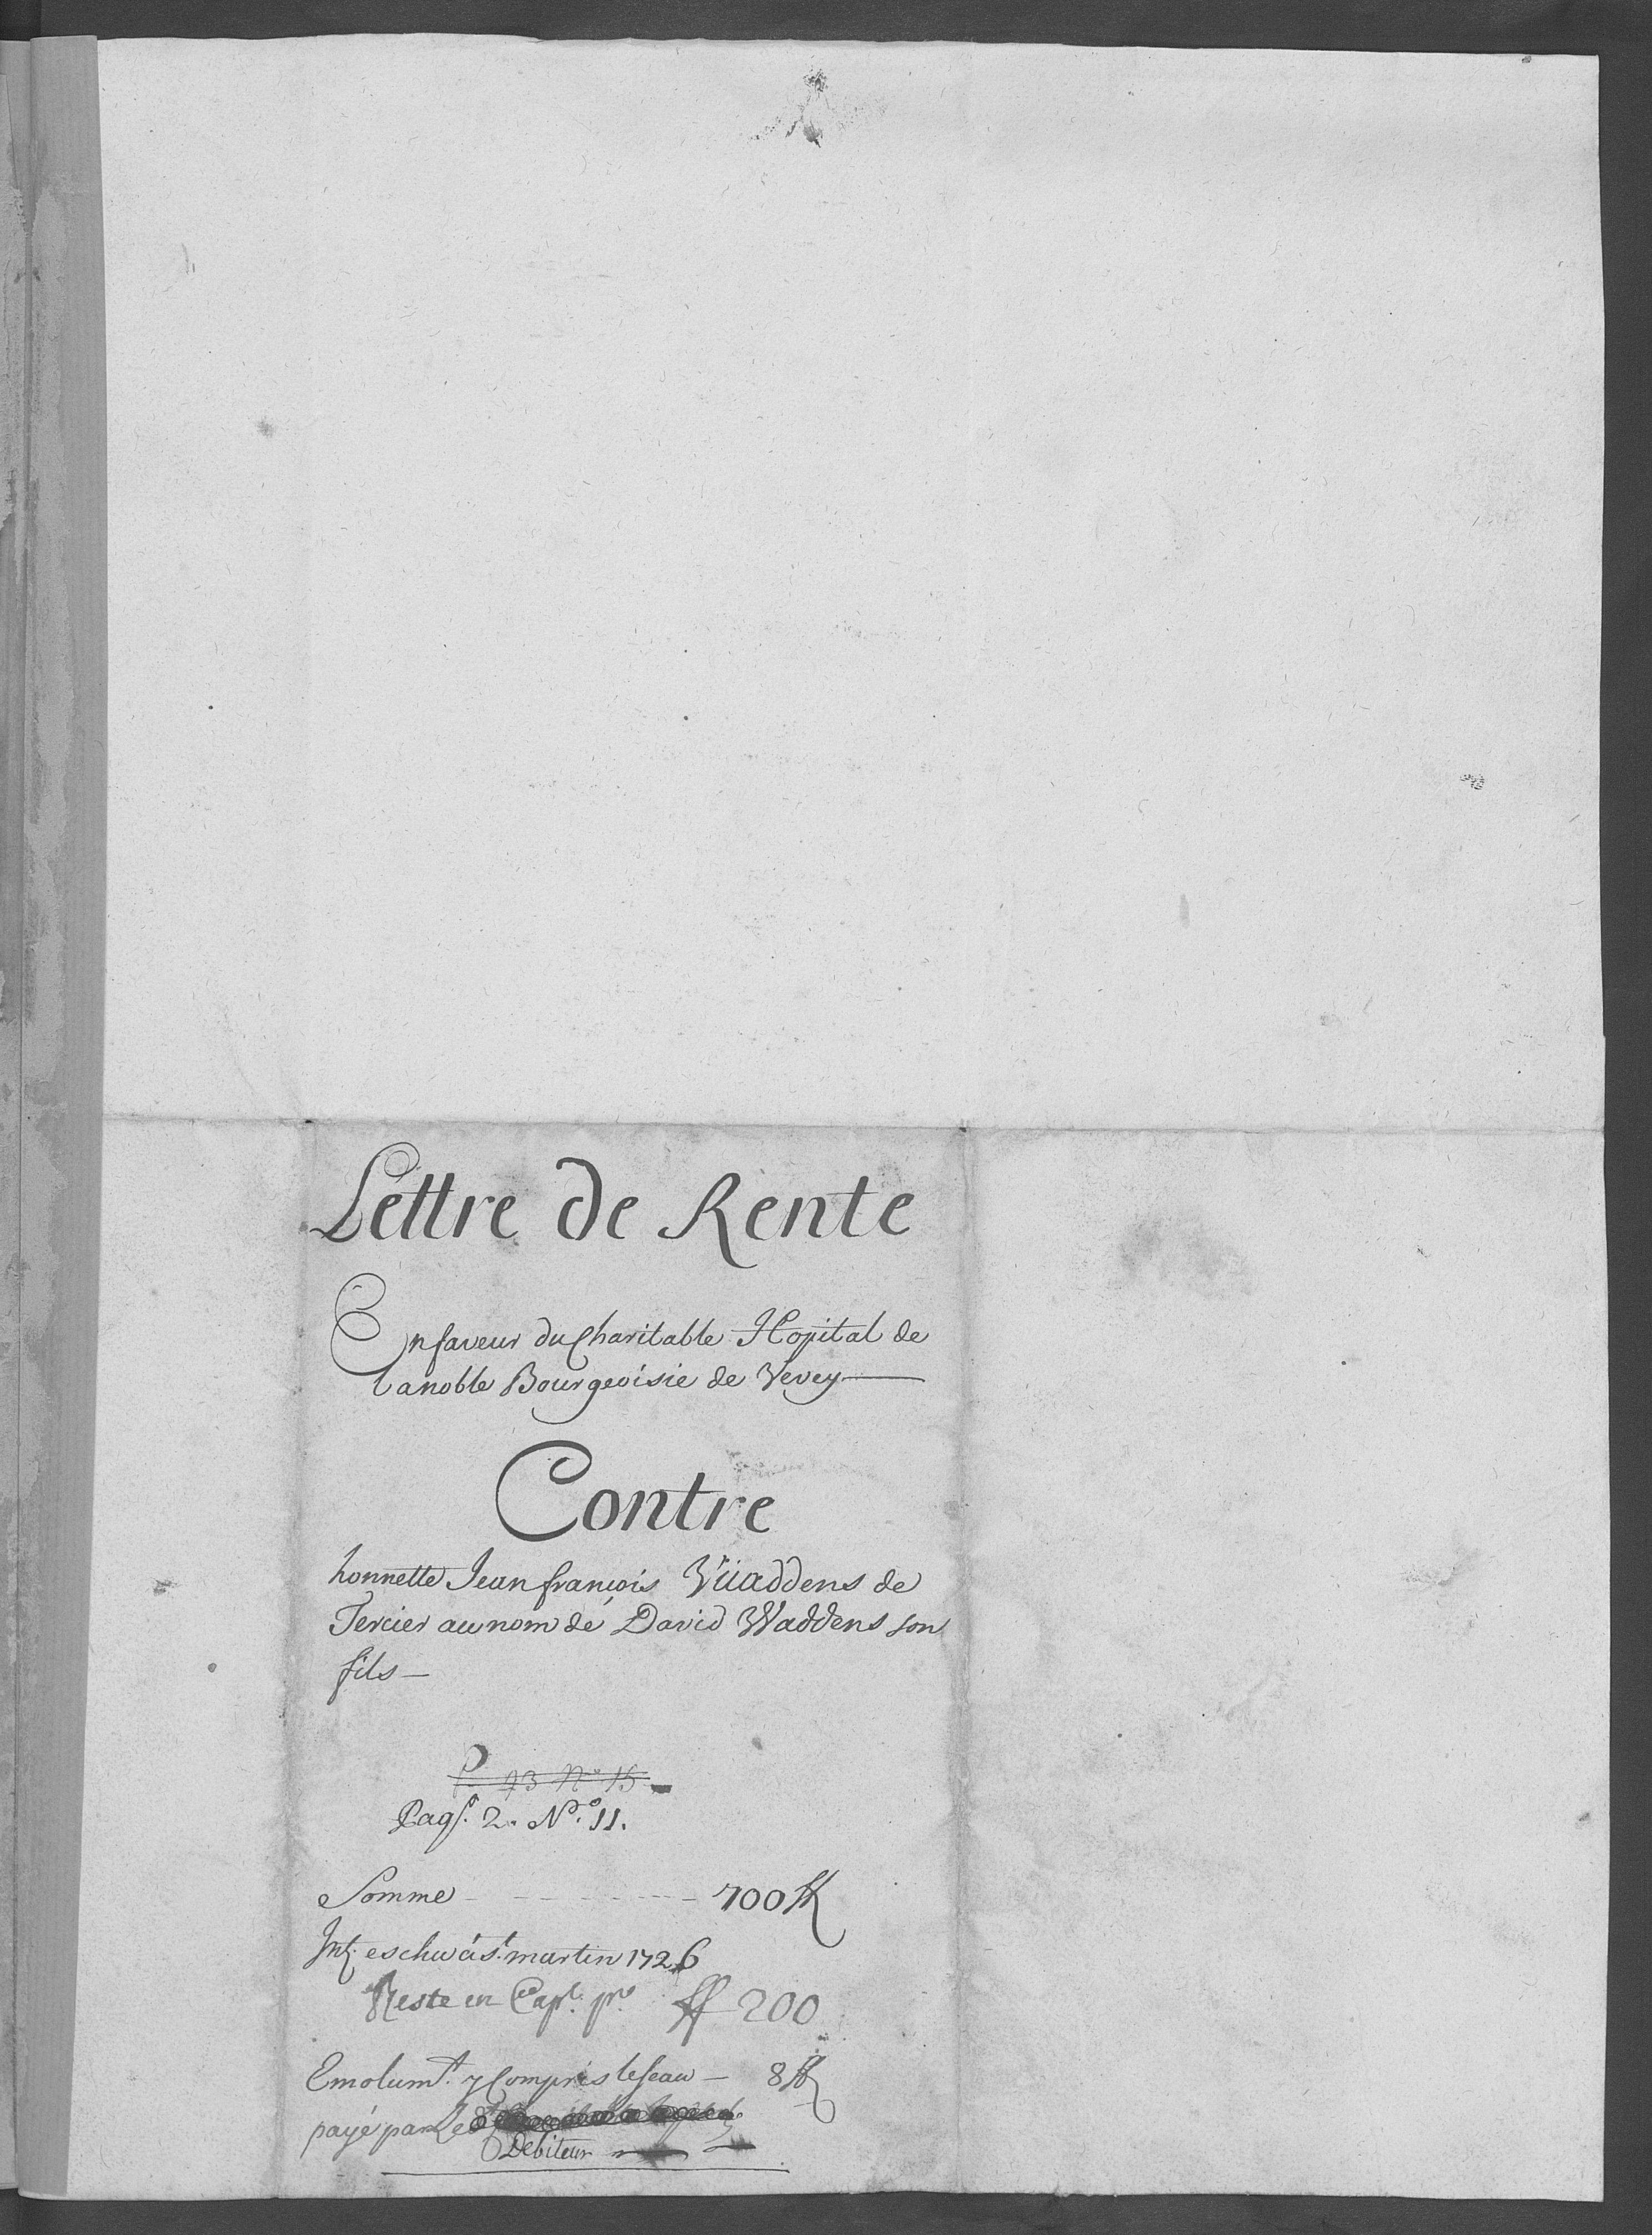 Lettre de Rente
En faveur du Charitable Hopital de
la noble Bourgeoisie de Vevey
Contre
honnette Jean françois Vüaddens de
Tercier au nom de David Waddens son
fils
P. 93 No. 15
Pag. 2. No. 11.
Somme - - - - - - - 700 ff
Int. eschu à st. martin 1726
Reste en Capl. pr. ff 200
Emolumt. y Compris le seau — 8 ff
payé par Le
Debiteur